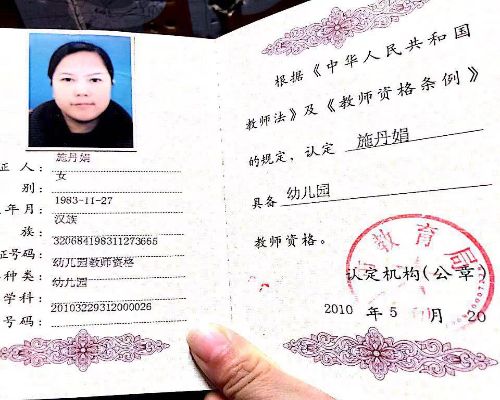 施丹娟
证人：
女
别：
1983-11-27
年月：
汉族
族：
320684198311273665
证号码：
幼儿园教师资格
种类：
幼儿园
学科：
20103229312000026
号码：
根据《中华人民共和国
教师法》及《教师资格条例》
的规定，认定 施丹娟
具备 幼儿园
教师资格。
教育局
认定机构(公章)
2010 年 5 月 20